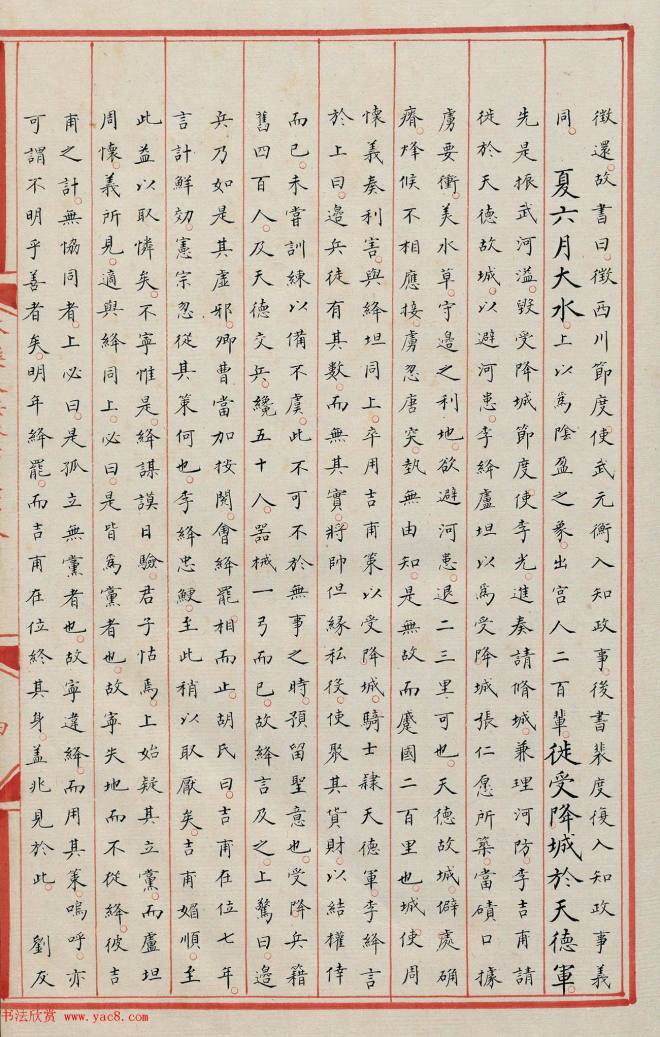 徵還。故書曰。徵西川節度使武元衡入知政事。後書裴度復入知政事義
同。夏六月大水。上以為陰盈之象。出宮人二百輩。徙受降城於天德軍。
先是振武河溢。毀受降城節度使李光。進奏請脩城。兼理河防。李吉甫請
徙於天德故城。以避河患。李絳盧坦以為受降城張仁愿所築。當磧口據
虜要衝。美水草。守邊之利地。欲避河患。退二三里可也。天德故城。僻處确
瘠。烽候不相應接。虜忽唐突。勢無由知。是無故而蹙國二百里也。城使周
懷義奏利害。與絳坦同上。卒用吉甫策。以受降城。騎士隸天德軍。李絳言
於上曰。邊兵徒有其數。而無其實。將帥但緣私役。使聚其貨財。以結權倖
而已。未嘗訓練以備不虞。此不可不於無事之時。預留聖意也。受降兵籍
舊四百人。及天德交兵。纔五十人。器械一弓而已。故絳言及之。上驚曰。邊
兵乃如是其虛邪。卿曹當加按閱。會絳罷相而止。胡氏曰。吉甫在位七年
言計鮮効。憲宗忽從其策何也。李絳忠鯁。至此稍以取厭矣。吉甫媚順。至
此益以取憐矣。不寧惟是。絳謀謨日驗。君子怙焉。上始疑其立黨。而盧坦
周懷義所見。適與絳同上。必曰。是皆為黨者也。故寧失地而不從絳。彼吉
甫之計。無恊同者。上必曰。是孤立無黨者也。故寧違絳。而用其策。嗚呼。亦
可謂不明乎善者矣。明年絳罷。而吉甫在位終其身。蓋兆見於此。 劉友
书法欣赏 www.yac8.com